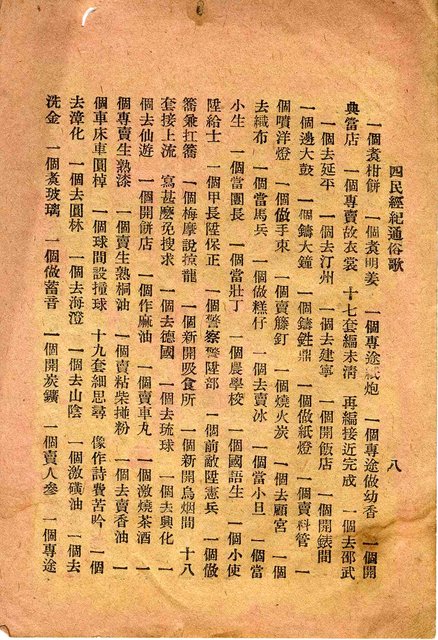 四民經紀通俗歌　八
一個煑柑餅　一個煑明姜　一個專途紙炮　一個專途做幼香　一個開
典當店　一個專賣故衣裳　十七套編未淸　再編接近完成　一個去邵武
一個去延平　一個去汀州　一個去建寧　一個開飯店　一個開錶間
一個邊大鼓　一個鑄大鐘　一個鑄鉎鼎　一個做紙燈　一個賣科管　一
個噴洋燈　一個做手朿　一個賣籐釘　一個燒火炭　一個去顧宮　一個
去織布　一個當馬兵　一個做糕仔　一個去賣冰　一個當小旦　一個當
小生　一個當團長　一個當壯丁　一個農學校　一個國語生　一個小使
陞給士　一個甲長陞保正　一個警察警陞部　一個前敵陞憲兵　一個做
籌兼扛籌　一個梅摩說掠龍　一個新開吸食所　一個新開烏烟間　十八
套接上流　寫甚麽免搜求　一個去德國　一個去琉球　一個去興化　一
個去仙遊　一個開餅店　一個作麻油　一個賣車丸　一個激燒茶酒　一
個專賣生熟漆　一個賣生熟桐油　一個賣粘柴捶粉　一個去賣香油　一
個車床車圓棹　一個球間設撞球　十九套細思尋　像作詩費苦吟　一個
去漳化　一個去圓林　一個去海澄　一個去山陰　一個激磺油　一個去
洗金　一個煑玻璃　一個做蓄音　一個開炭鑛　一個賣人參　一個專途